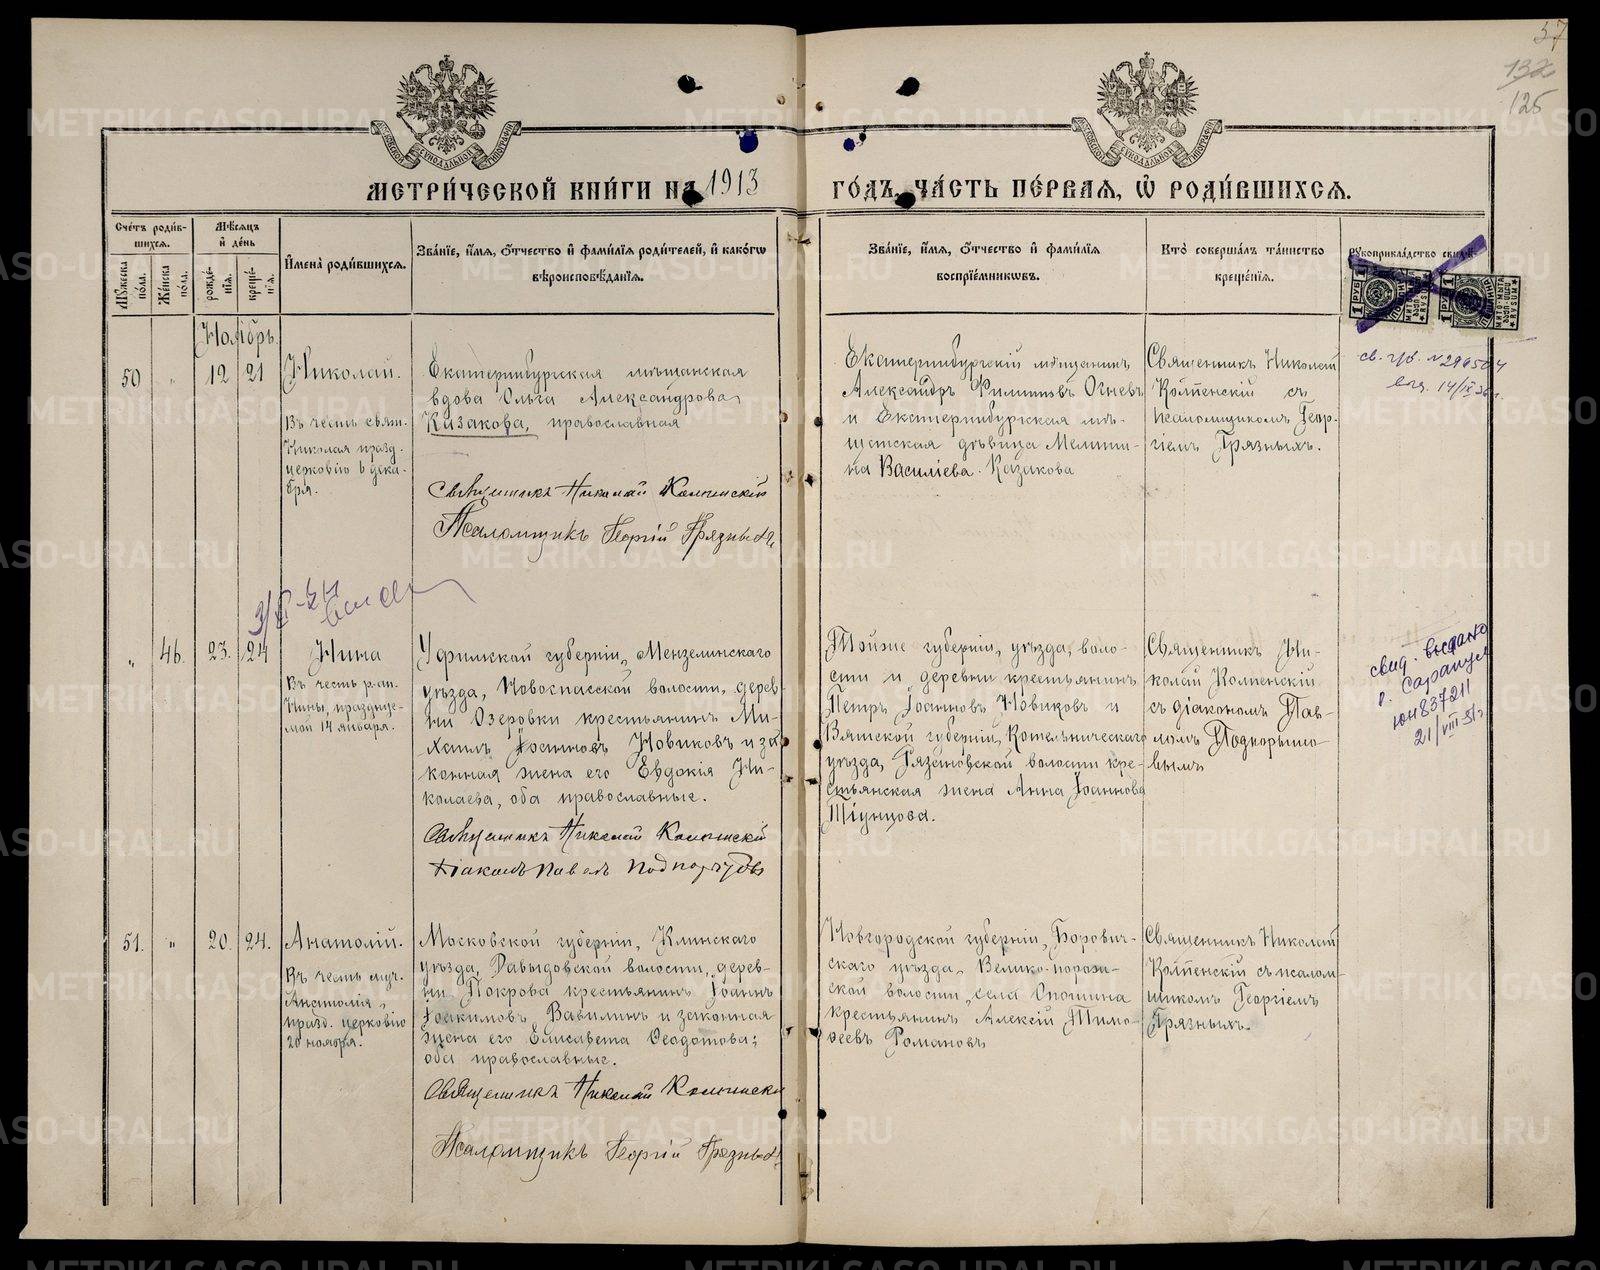 37
132
125
МЕТРИ́ЧЕСКОЙ КНИ́ГИ НА 1913 ГО́ДЪ, ЧА́СТЬ ПЕ́РВАЯ, Ѡ҆ РОДИ́ВШИХСЯ.
Сче́тъ роди́в-
шихся.
Мѣ́сяцъ
и҆ де́нь
Мꙋ́жеска
по́ла.
Же́нска
по́ла.
рожде́-
нїя.
креще́-
нїя.
И҆мена̀ роди́вшихся.
Зва́нїе, и҆́мя, ѻ҆́тчество и҆ фами́лїя роди́телей, и҆ како́гѡ
вѣроисповѣ́данїя.
Зва́нїе, и҆́мя, ѻ҆́тчество и҆ фами́лїя
воспрїе́мникѡвъ.
Кто̀ соверша́лъ та́инство
креще́нїя.
Рꙋкоприкла́дство свидѣ́
Ноябрь
50
"
12
21
Николай.
Въ честь свят.
Николая празд.
церковію 6 дека-
бря.
Екатеринбургская мѣщанская
вдова Ольга Александрова
Казакова, православная
Священникъ Николай Колпенскій
Псаломщикъ Георгій Грязныхъ
Екатеринбургскій мѣщанинъ
Александръ Филиповъ Огневъ
и Екатеринбургская мѣ-
щанская дѣвица Мелити-
на Василіева Казакова
Священникъ Николай
Колпенскій съ
псаломщикомъ Геор-
гіемъ Грязныхъ.
1 РУБ
1 РУБ
3/
"
46.
23.
24
Нина
Въ честь р-ап.
Нины, празднуе-
мой 14 января.
Уфимской губерніи, Мензелинскаго
уѣзда, Новоспасской волости, дерев-
ни Озеровки крестьянинъ Ми-
хаилъ Іоанновъ Новиковъ и за
конная жена его Евдокія Ни-
колаева, оба православные.
Священникъ Николай Колпенскій
Діаконъ Павелъ
Тойже губерніи, уѣзда, воло-
сти и деревни крестьянинъ
Петръ Іоанновъ Новиковъ и
Вятской губерніи, Котельническаго
уѣзда, волости кре-
стьянская жена Анна Іоаннова
Тіунцова.
Священникъ Ни-
колай Колпенскій
съ діакономъ Пав-
ломъ
свид. выдано
г. Сарапул
ЮН 837211
21/VIII 51г
51.
"
20.
24.
Анатолій.
Въ честь муч.
Анатолія,
празд. церковію
20 ноября.
Московской губерніи, Клинскаго
уѣзда, Давыдовской волости, дерев-
ни Покрова крестьянинъ Іоаннъ
Іоакимовъ Вавилинъ и законная
жена его Елисавета Ѳеодотова;
оба православные.
Священникъ Николай Колпенскі
Псаломщикъ Георгій Грязныхъ
Новгородской губерніи, Борович-
скаго уѣзда, Велико-пороз-
ской волости, села Опошина
крестьянинъ Алексій Тимо-
ѳеевъ Романовъ
Священникъ Николай
Колпенскій съ псалом-
щикомъ Георгіемъ
Грязныхъ.
METRIKI.GASO-URAL.RU